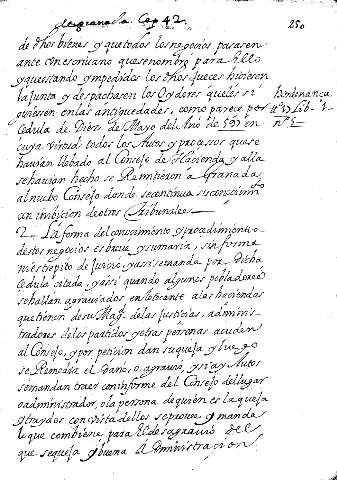 de granada Cap 42. 250
de dhos bienes y que todos los negocios pasasen
ante un escriuano que se nombre para Ello
y que estando ympedidos los dhos Jueces hiciesen
la Junta y despachasen los Oydores que les si
guiesen en las antiguedades, como parece por
Cedula de Diez de Mayo del Año de 597 en
cuya virtud todos los Autos y procesos que se
hauian llebado al Consejo de Hacienda y alla
se hauian hecho se Remitieron a Granada
al nuebo Consejo donde se continua su conocimto
con inibicion de otros Tribunales
Hordenança
2. La forma del conocimiento y procedimiento
destos negocios es breue y sumaria, sin forma
ni estrepito de Juicio y assi se manda por Dicha
Cedula citada, y assi quando algunos pobladores
se hallan agrauiados en lo tocante a las haciendas
que tienen de su Magd. de las Justicias, adminis-
tradores de los partidos y otras personas acuden
al Consejo, y por peticion dan su queja y luego
se Remedia el daño, o agrauio, y si ay Autos
se mandan traer con informe del Consejo del lugar
o administrador, o la persona de quien es la queja
y traydos con vista dellos se prouee y manda
lo que combiene para El desagrauio del
que se queja y buena Administracion